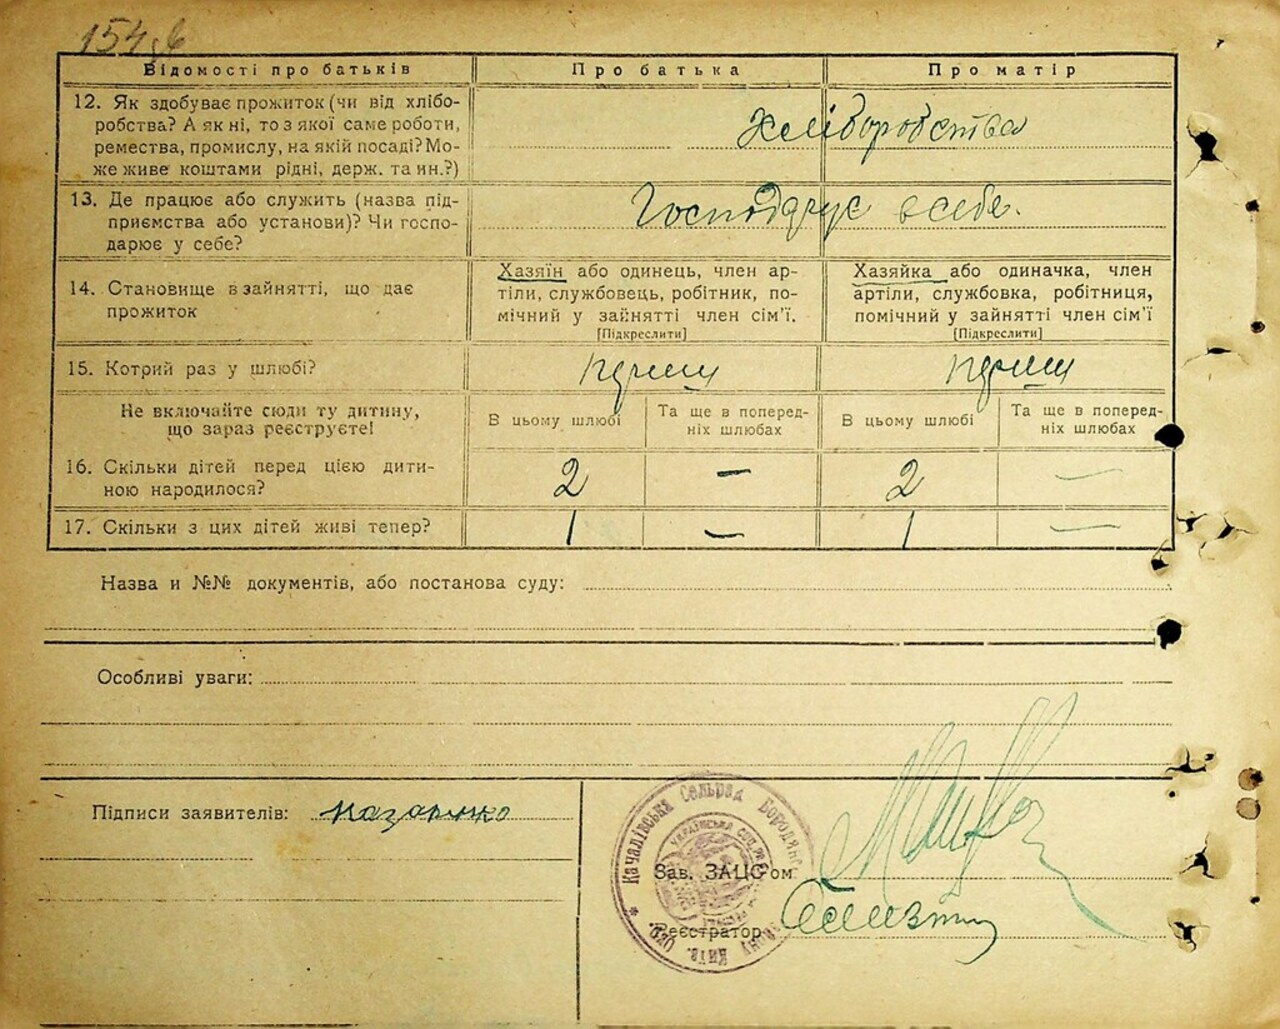 154
Відомості про батьків
Про батька
Про матір
12. Як здобуває прожиток (чи від хлібо-
робства? А як ні, то з якої саме роботи,
ремества, промислу, на якій посаді? Мо-
же живе коштами рідні, держ. та ин.?)
Хліборобства
13. Де працює або служить (назва під-
приємства або установи)? Чи госпо-
дарює у себе?
Господарує в себе.
14. Становище в зайнятті, що дає
прожиток
Хазяїн або одинець, член ар-
тіли, службовець, робітник, по-
мічний у зайнятті член сім'ї.
[Підкреслити]
Хазяйка або одиначка, член
артіли, службовка, робітниця,
помічний у зайнятті член сім'ї
[Підкреслити]
15. Котрий раз у шлюбі?
перший
перший
Не включайте сюди ту дитину,
що зараз реєструєте!
В цьому шлюбі
Та ще в поперед-
ніх шлюбах
В цьому шлюбі
Та ще в поперед-
ніх шлюбах
16. Скільки дітей перед цією дити-
ною народилося?
2 — 2 —
17. Скільки з цих дітей живі тепер?
1 — 1 —
Назва и №№ документів, або постанова суду:
Особливі уваги:
Підписи заявителів: Назаренко
* Качалівська Сельрад Бородянс
району Київ. Окр.
Українська Соц.
Зав. ЗАЦС-ом
Реєстратор